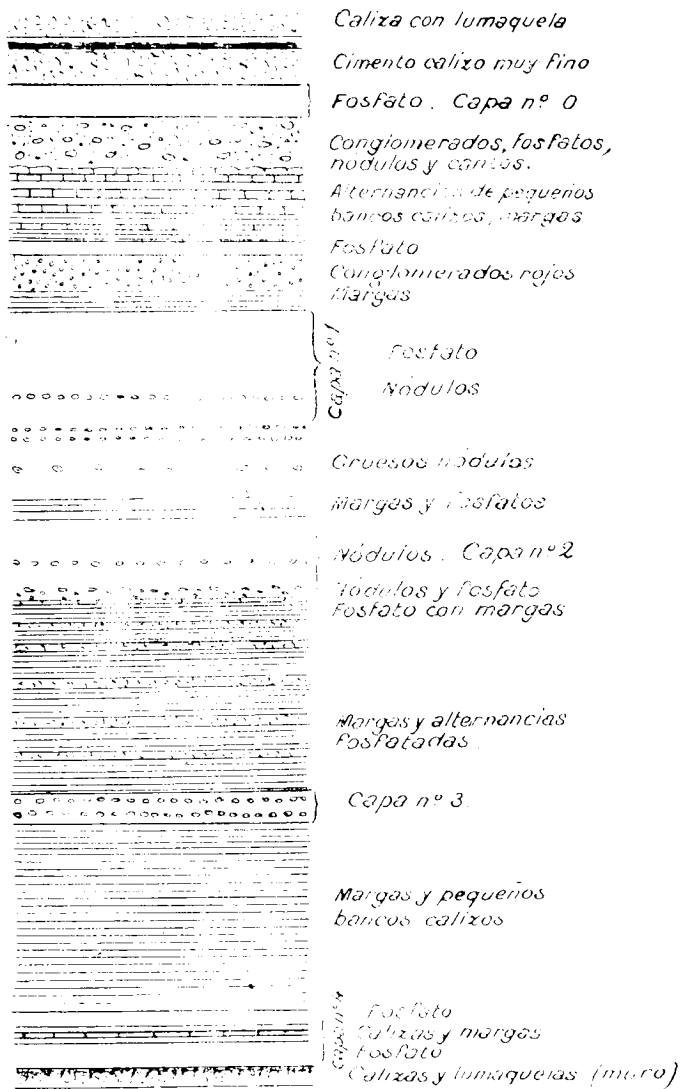 Caliza con lumaquela
Cimento calizo muy fino
Fosfato. Capa nº 0
Conglomerados, fosfatos,
nodulos y cantos.
Alternancia de pequeños
bancos calizos, margas
Fosfato
Conglomerados rojos
Margas
Capa nº 1
Fosfato
Nódulos
Gruesos nódulos
Margas y fosfatos
Nódulos. Capa nº 2
Nódulos y fosfato
Fosfato con margas
Margas y alternancias
fosfatadas.
Capa nº 3.
Margas y pequeños
bancos calizos
Capa nº 4
Fosfato
Calizas y margas
Fosfato
Calizas y lumaquelas (muro)